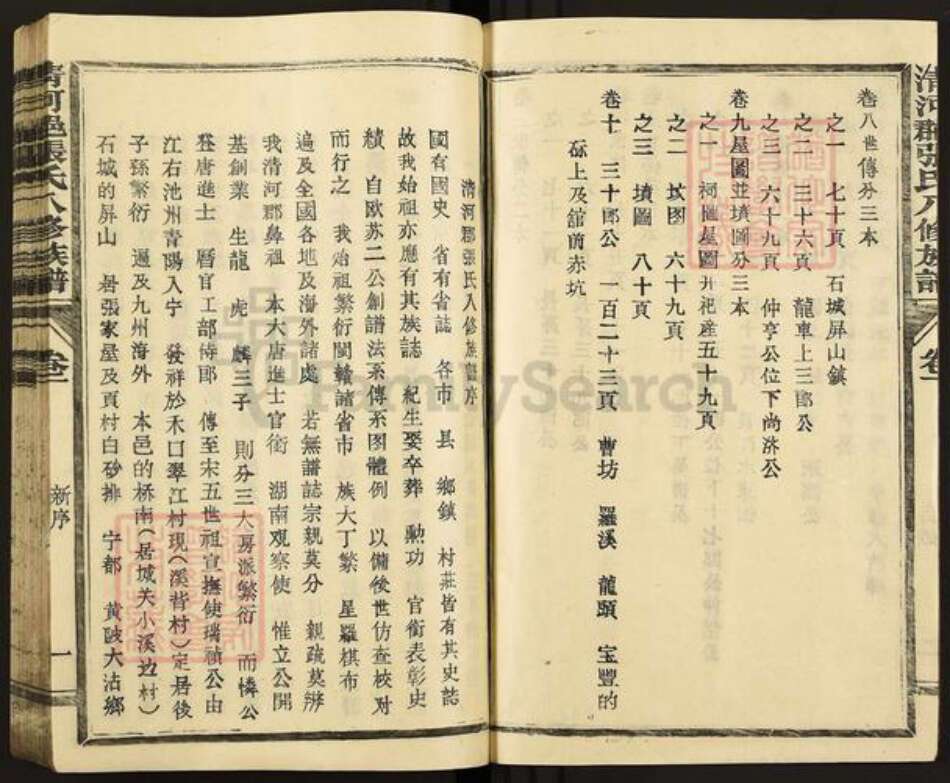 卷八世傳分三本
之一 七十頁 石城屏山鎮
之二 三十六頁 龍車上三郎公
之三 六十九頁 仲亨公位下尚济公
卷九屋圖並墳圖分三本
之一 祠𢊍屋圖并祀産五十九頁
之二 坟图 六十九頁
之三 墳圖 八十頁
卷十 三十郎公 一百二十三頁 曹坊 羅溪 龍頭 宝豐的
砾上及舘前赤坑
清河郡張氏八修族譜
卷一
清河郡張氏八修族譜序
國有國史 省有省誌 各市 县 鄉鎮 村莊皆有其史誌
故我始祖亦應有其族誌 紀生娶卒葬 勲功 官銜表彰史
績 自欧苏二公創譜法系傳系图體例 以備後世仿查校对
而行之 我始祖繁衍閩贛諸省市 族大丁繁 星羅棋布
遍及全國各地及海外諸處 若無譜誌宗親莫分 親疏莫辨
我清河郡鼻祖 本大唐進士官銜 湖南观察使 惟立公開
基創業 生龍 虎 麟三子 則分三大房派繁衍 而憐公
登唐進士 曆官工部侍郎 傳至宋五世祖宣撫使瑞禎公由
江右池州青陽入宁 發祥於禾口翠江村現(溪背村)定居後
子孫繁衍 遍及九州海外 本邑的桥南(居城关小溪边村)
石城的屏山 居張家屋及頁村白砂排 宁都 黄陂大沽鄉
清河郡張氏八修族譜
卷一
新序
一
FamilySearch